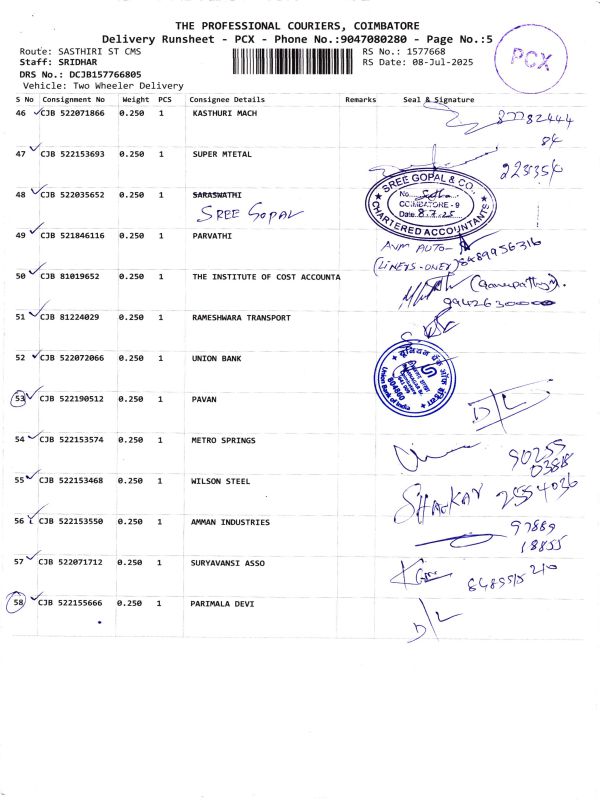 THE PROFESSIONAL COURIERS, COIMBATORE
Delivery Runsheet - PCX - Phone No.:9047080280 - Page No.:5
Route: SASTHIRI ST CMS RS No.: 1577668
Staff: SRIDHAR RS Date: 08-Jul-2025
DRS No.: DCJB157766805
Vehicle: Two Wheeler Delivery
PCX
S No Consignment No Weight PCS Consignee Details Remarks Seal & Signature
46 CJB 522071866 0.250 1 KASTHURI MACH
47 CJB 522153693 0.250 1 SUPER MTETAL
48 CJB 522035652 0.250 1 SARASWATHI
SREE GOPAL
SREE GOPAL & CO.,
COIMBATORE - 9
Date. 8.7.25
CHARTERED ACCOUNTANTS
49 CJB 521846116 0.250 1 PARVATHI
AVM AUTO-
8489956316
50 CJB 81019652 0.250 1 THE INSTITUTE OF COST ACCOUNTA
(Ganapathy).
51 CJB 81224029 0.250 1 RAMESHWARA TRANSPORT
52 CJB 522072066 0.250 1 UNION BANK
यूनियन बैंक ऑफ इंडिया
Union Bank of India
53 CJB 522190512 0.250 1 PAVAN D/L
54 CJB 522153574 0.250 1 METRO SPRINGS
90255
03818
55 CJB 522153468 0.250 1 WILSON STEEL
SHANKAR 2554036
56 CJB 522153550 0.250 1 AMMAN INDUSTRIES
97889
18855
57 CJB 522071712 0.250 1 SURYAVANSI ASSO
58 CJB 522155666 0.250 1 PARIMALA DEVI D/L